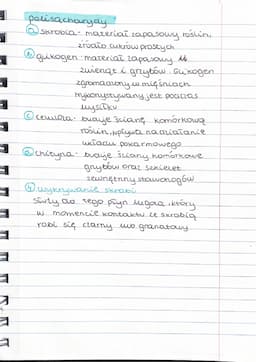 polisacharydy
a) skrobia - materiał zapasowy roślin,
źródło cukrów prostych
b) glikogen - materiał zapasowy
zwierząt i grzybów. Glikogen
zgromadzony w mięśniach
wykorzystywany jest podczas
wysiłku
c) celuloza - buduje ścianę komórkową
roślin, wpływa na działanie
układu pokarmowego
d) chityna - buduje ściany komórkowe
grzybów oraz szkielet
zewnętrzny stawonogów
wykrywanie skrobi
służy do tego płyn lugola, który
w momencie kontaktu ze skrobią
robi się czarny lub granatowy